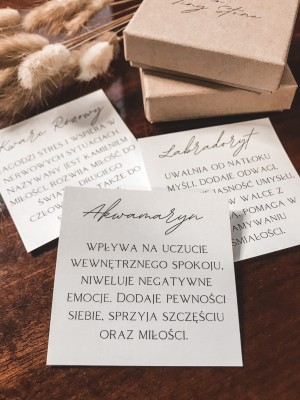 Tiny Stone
Kwarc Różowy
ŁAGODZI STRES I WSPIERA W
NERWOWYCH SYTUACJACH.
NAZYWANY JEST KAMIENIEM
MIŁOŚCI. ROZWIJA MIŁOŚĆ DO
DRUGIEGO
TAKŻE DO
Labradoryt
UWALNIA OD NATŁOKU
MYŚLI, DODAJE ODWAGI,
JASNOŚĆ UMYSŁU,
W WALCE Z
POMAGA W
Akwamaryn
WPŁYWA NA UCZUCIE
WEWNĘTRZNEGO SPOKOJU,
NIWELUJE NEGATYWNE
EMOCJE. DODAJE PEWNOŚCI
SIEBIE, SPRZYJA SZCZĘŚCIU
ORAZ MIŁOŚCI.